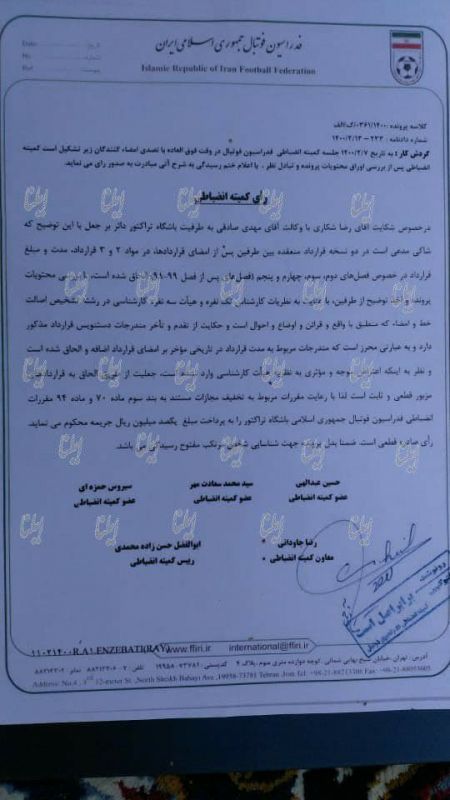 فدراسیون فوتبال جمهوری اسلامی ایران
Islamic Republic of Iran Football Federation
تاریخ
شماره
پیوست
کلاسه پرونده :۰۳۶۱/۱۴۰۰/ک/الف
شماره دادنامه : ۲۳۳- ۱۴۰۰/۲/۱۳
گردش کار : به تاریخ ۱۴۰۰/۲/۷ جلسه کمیته انضباطی فدراسیون فوتبال در وقت فوق العاده با تصدی امضاء کنندگان زیر تشکیل است کمیته
انضباطی پس از بررسی اوراق محتویات پرونده و تبادل نظر ، با اعلام ختم رسیدگی به شرح آتی مبادرت به صدور رای می نماید.
رأی کمیته انضباطی
درخصوص شکایت آقای رضا شکاری با وکالت آقای مهدی صادقی به طرفیت باشگاه تراکتور دائر بر جعل با این توضیح که
شاکی مدعی است در دو نسخه قرارداد منعقده بین طرفین پس از امضای قراردادها، در مواد ۲ و ۳ قرارداد، مدت و مبلغ
قرارداد در خصوص فصل‌های دوم، سوم، چهارم و پنجم (فصل‌های پس از فصل ۹۹-۹۸) الحاق شده است، با بررسی محتویات
پرونده و اخذ توضیح از طرفین، با عنایت به نظریات کارشناسی تک نفره و هیأت سه نفره کارشناسی در رشته تشخیص اصالت
خط و امضاء که منطبق با واقع و قرائن و اوضاع و احوال است و حکایت از تقدم و تأخر مندرجات دستنویس قرارداد مذکور
دارد و به عبارتی محرز است که مندرجات مربوط به مدت قرارداد در تاریخی مؤخر بر امضای قرارداد اضافه و الحاق شده است
و نظر به اینکه اعتراض موجه و مؤثری به نظریه هیأت کارشناسی وارد نشده است، جعلیت از طریق الحاق به قراردادهای
مزبور قطعی و ثابت است لذا با رعایت مقررات مربوط به تخفیف مجازات مستند به بند سوم ماده ۷۰ و ماده ۹۴ مقررات
انضباطی فدراسیون فوتبال جمهوری اسلامی باشگاه تراکتور را به پرداخت مبلغ یکصد میلیون ریال جریمه محکوم می نماید.
رأی صادره قطعی است. ضمنا بدل پرونده جهت شناسایی شخص مرتکب مفتوح رسیدگی می باشد.
حسین عبدالهی
عضو کمیته انضباطی
سید محمد سعادت مهر
عضو کمیته انضباطی
سیروس حمزه ای
عضو کمیته انضباطی
رضا جاودانی
معاون کمیته انضباطی
ابوالفضل حسن زاده محمدی
رییس کمیته انضباطی
رونوشت
برابر اصل است
۱۱۰۲۱۴۰۰(R.A1.ENZEBATI(RAY
www.ffiri.ir international@ffiri.ir
آدرس: تهران، خیابان شیخ بهایی شمالی، کوچه دوازده متری سوم، پلاک ۴ کدپستی: ۷۳۷۸۱-۱۹۹۵۸
Address: No.4 , 3rd 12-meter St .,North Sheikh Bahayi Ave ,19958-73781 Tehran ,Iran
ایلنا